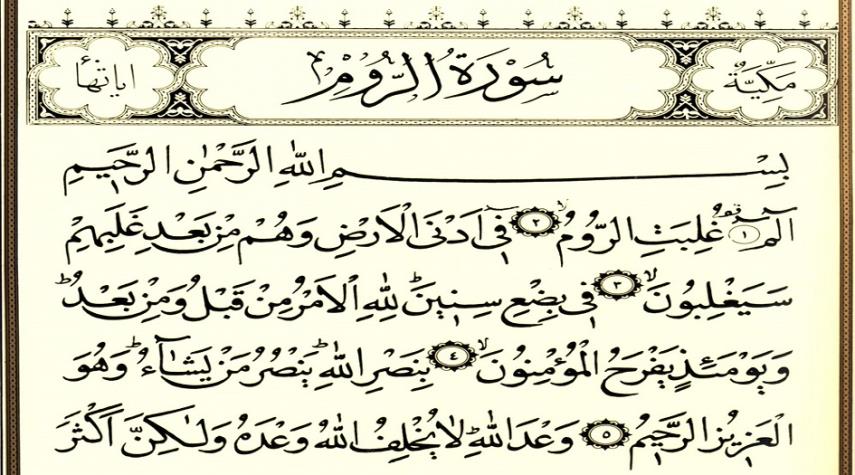 مَكِّيَّةٌ سُورَةُ الرُّومِ اٰيَاتُهَا
بِسْمِ اللّٰهِ الرَّحْمٰنِ الرَّحِيمِ
الٓمٓ ۚ ١ غُلِبَتِ الرُّومُ ۙ ٢ فِٓي اَدْنَى الْاَرْضِ وَهُمْ مِنْ بَعْدِ غَلَبِهِمْ
سَيَغْلِبُونَ ۙ ٣ فِي بِضْعِ سِنِينَ ۜ لِلّٰهِ الْاَمْرُ مِنْ قَبْلُ وَمِنْ بَعْدُ ۜ
وَيَوْمَئِذٍ يَفْرَحُ الْمُؤْمِنُونَ ۙ ٤ بِنَصْرِ اللّٰهِ ۜ يَنْصُرُ مَنْ يَشَٓاءُ ۜ وَهُوَ
الْعَزِيزُ الرَّحِيمُ ٥ وَعْدَ اللّٰهِ ۜ لَا يُخْلِفُ اللّٰهُ وَعْدَهُ وَلٰكِنَّ اَكْثَرَ